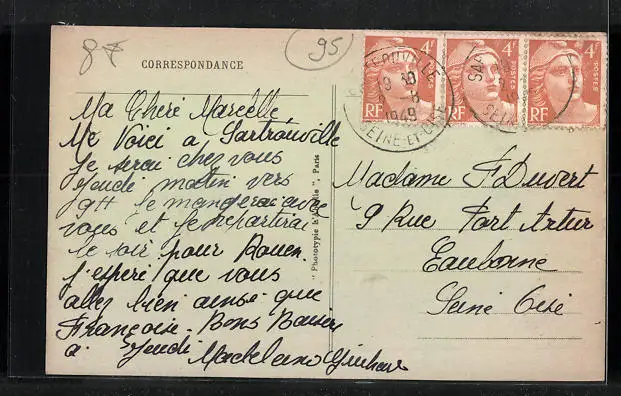 8f
95
CORRESPONDANCE
4F
4F
4F
POSTES
POSTES
RF
RF
RF
SARTROUVILLE
9 30
-8
1949
SEINE-ET-OISE
SAR
SEINE
Ma Cheré Marcelle
Me Voici a Sartrouville
Je serai chez vous
Jeudi matin vers
9H Je mangerai avec
vous et je repartirai
le soir pour Rouen.
J'esperé que vous
allez bien ainsi que
Françoise. Bons Baisers
a Jeudi
" Phototypie d'Abeille ", Paris
Madame F Duvert
9 Rue Port Artur
Eaubonne
Seine Oise